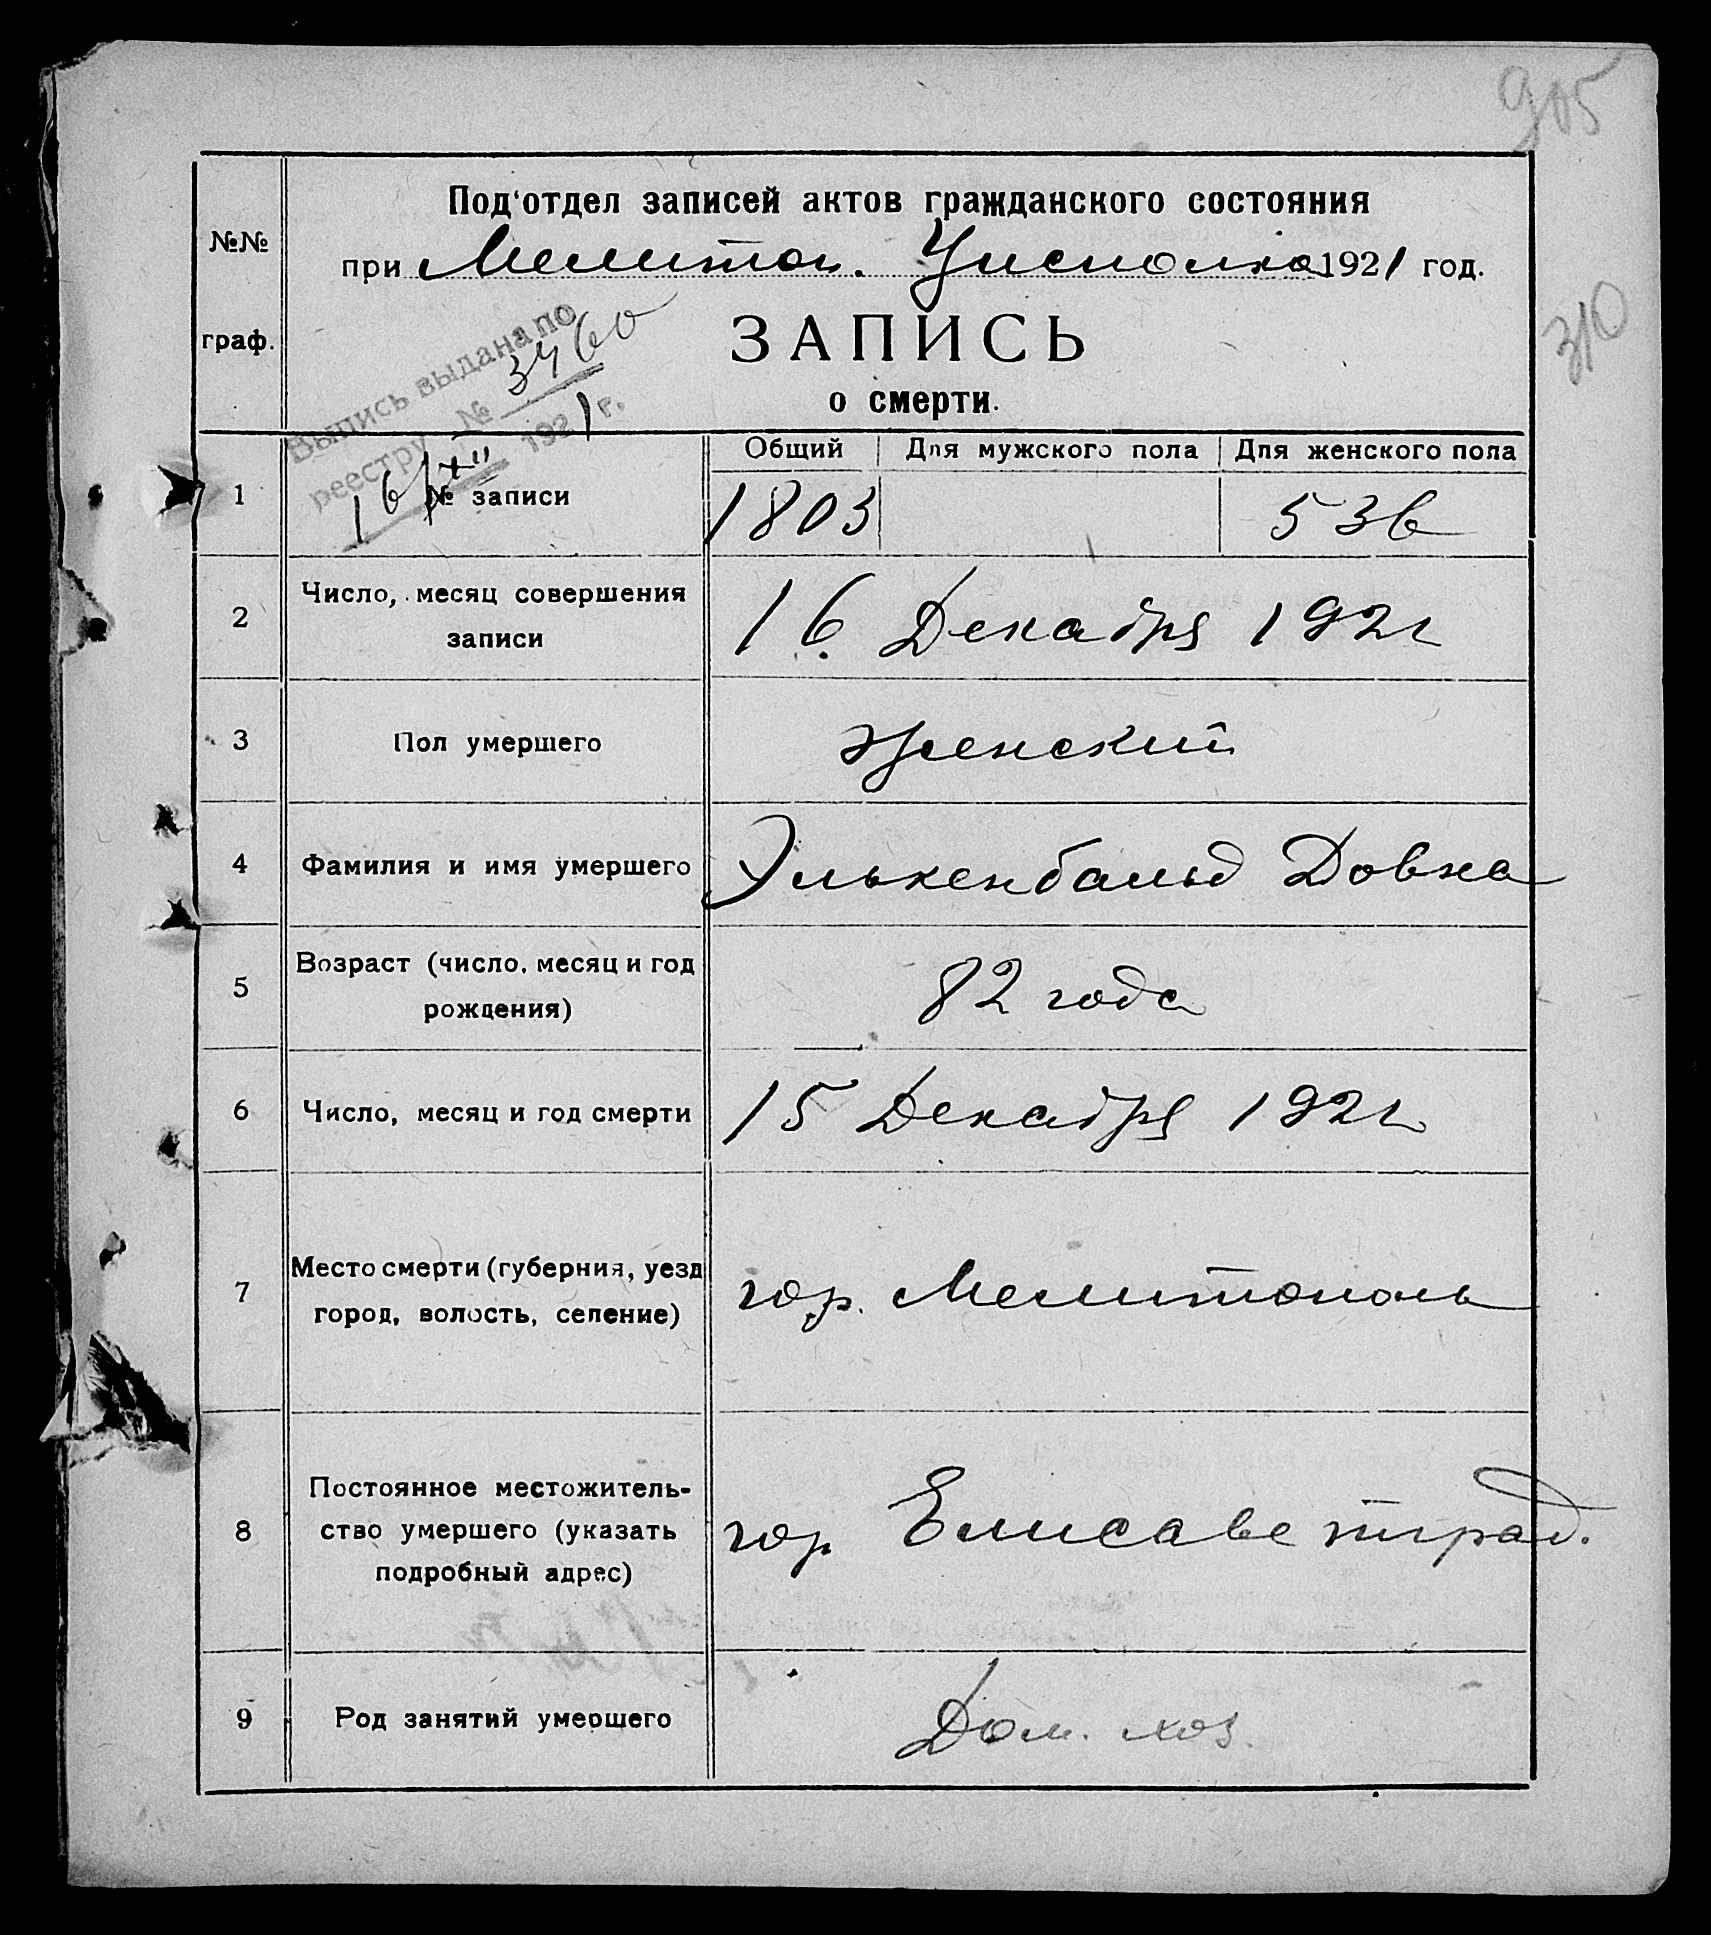 905
Под‘отдел записей актов гражданского состояния
№№
при Мелитоп. Уисполко 1921 год.
310
граф.
ЗАПИСЬ
о смерти.
Выпись выдана по
реестру № 3460
16/XII 1921 г.
Общий Для мужского пола Для женского пола
1 № записи 1803 536
2 Число, месяц совершения
записи
16 Декабря 1921
3 Пол умершего женский
4 Фамилия и имя умершего Элькенбальд Довка
5 Возраст (число, месяц и год
рождения)
82 года
6 Число, месяц и год смерти 15 Декабря 1921
7 Место смерти (губерния, уезд
город, волость, селение)
гор. Мелитополь
8 Постоянное местожитель-
ство умершего (указать
подробный адрес)
гор Елисаветград.
9 Род занятий умершего Дом. хоз.